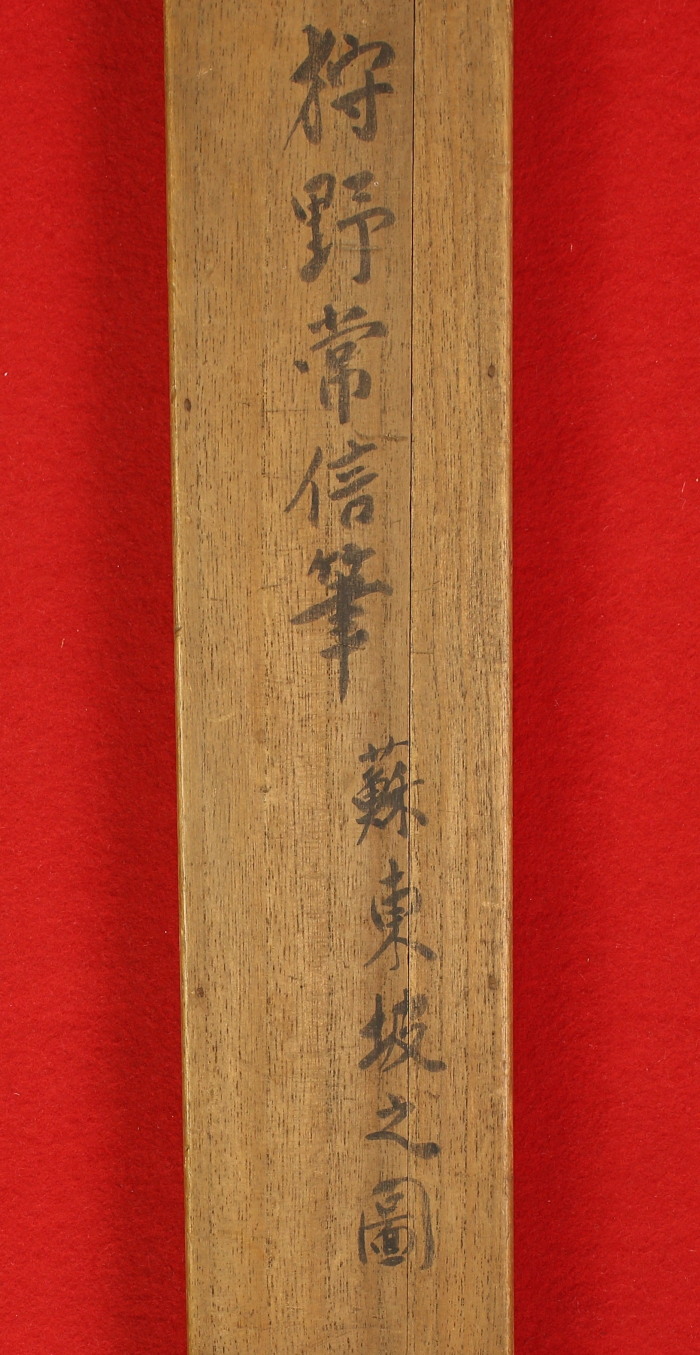 狩野常信筆
蘇東坡之圖